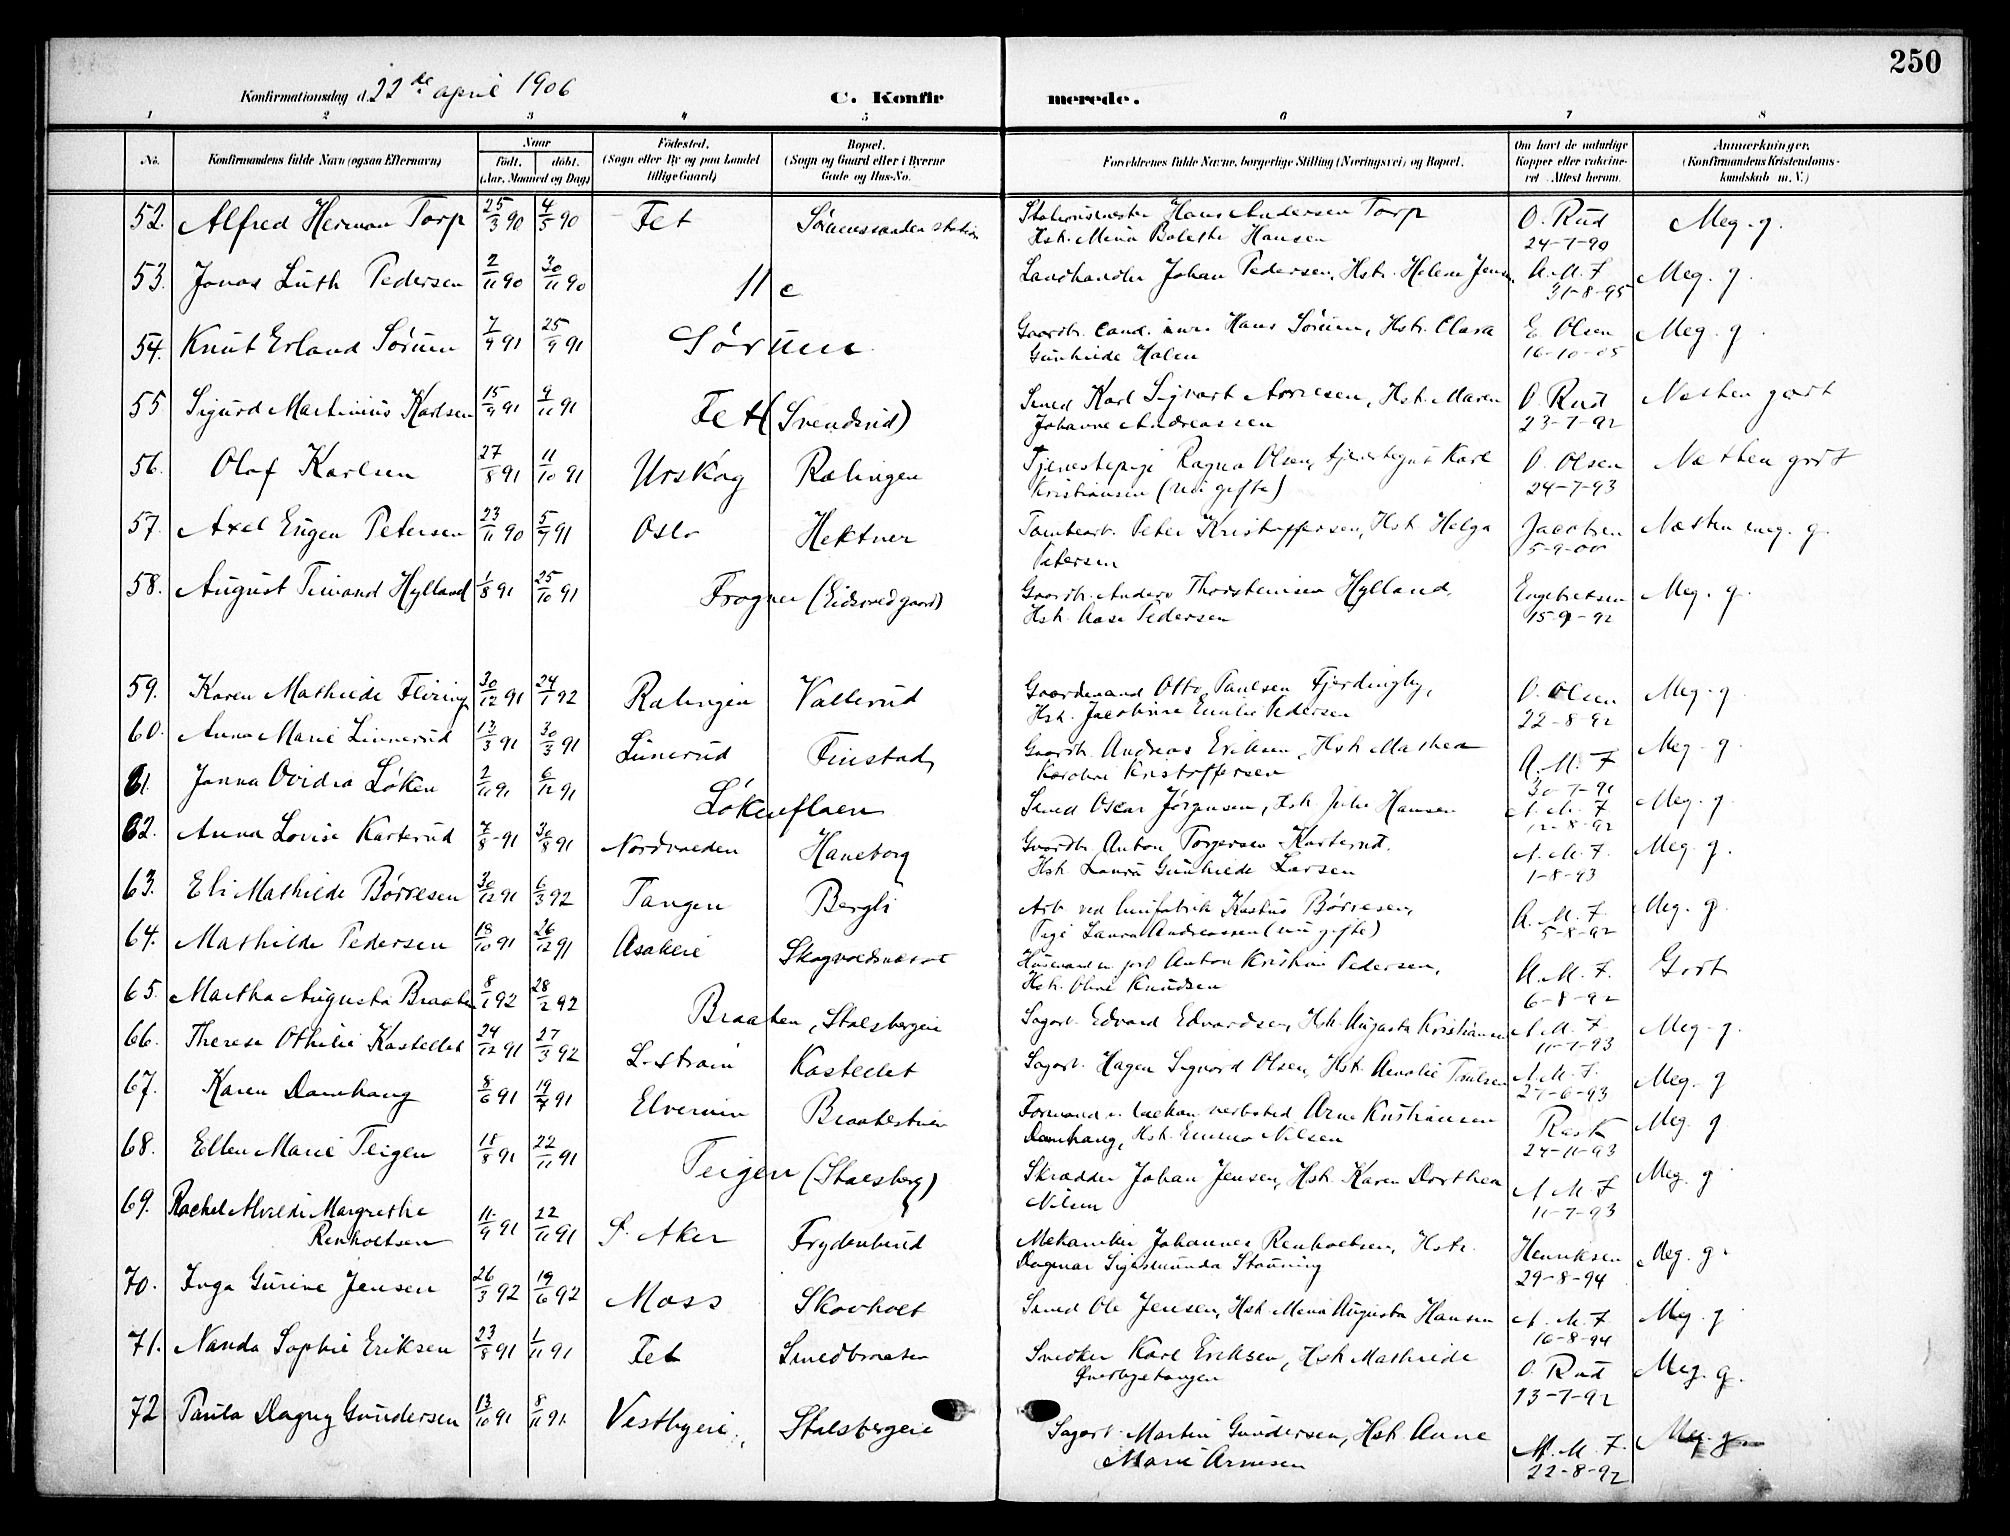 250
Konfirmationsdag d. 22de april 1906
C. Konfirmerede.
1 2 3 4 5 6 7 8
No.
Konfirmandens fulde Navn (ogsaa Efternavn)
Naar
født. døbt.
(Aar, Maaned og Dag)
Fødested.
(Sogn eller By og paa Landet tillige Gaard)
Bopæl.
(Sogn og Gaard eller i Byerne Gade og Hus-No.
Forældrenes fulde Navne, borgerlige Stilling (Næringsvei) og Bopæl.
Om havt de naturlige Kopper eller vaksineret - Attest herom.
Anmerkninger.
(Konfirmandens Kristendomskundskab m. V.)
52. Alfred Herman Torp 25/3 90 4/5 90 Fet Sørumssanden station Stationsmester Hans Andersen Torp O. Rud Meg. g.
Hst. Mina Bolethe Hansen 24-7-90
53. Jonas Luth Pedersen 2/11 90 30/11 90 Landhandler Johan Pedersen, Hstr. Helene A. M. F. Meg. g.
31-8-95
54. Knut Erland Sørum 7/9 91 25/9 91 Sørum Gaardbr. cand. Hans Sørum, Hstr. Clara E. Olsen Meg. g.
Gunhilde Holen 16-10-05
55 Sigurd Martinius Karlsen 15/9 91 9/11 91 Fet (Svendsrud) Smed Karl Sigvart Arnesen, Hst. Maren O. Rud Næsten godt
Johanne Andreassen 23-7-92
56. Olaf Karlsen 27/8 91 11/10 91 Urskog Rælingen Tjenestepige Ragna Olsen, Karl O. Olsen Næsten godt
Kristiansen (nu gifte) 24-7-93
57. Axel Eugen Petersen 23/11 90 5/9 91 Oslo Hektner Tomtearb. Peter Kristoffersen, Hst. Helga Jacobsen Næsten meg. g.
Petersen 5-9-00
58. August Hylland 1/8 91 25/10 91 Frogner (Eidsvold gaard) Gaardbr. Anders Thorsteinsen Hylland, Engebretsen Meg. g.
Hst. Aase Pedersen 15-9-92
59. Karen Mathilde 30/12 91 24/1 92 Rælingen Vallerud Gaardmand Otto Paulsen Fjerdingby, O. Olsen Meg. g.
Hst. Jacobine Emilie Pedersen 22-8-92
60. Anna Marie Linnerud 13/3 91 30/3 91 Linnerud Finstad Gaardbr. Andreas Eriksen, Hst. Mathea Meg. g.
Karoline Kristoffersen A. M. F. 30-7-91
61. Janna Ovidia Løken 2/11 91 6/12 91 Løkenflaen Smed Oscar Jørgensen, Hst. Julie Hansen A. M. F. Meg. g.
12-8-92
62. Anna Lovise Karterud 7/8-91 30/8 91 Haneborg Gaardbr. Anton Torgersen Karterud, A. M. F. Meg. g.
Hst. Laura Gunhilde Larsen 1-8-93
63. Eli Mathilde Børresen 30/12 91 6/3 92 Tangen Bergli Arb. ved Børresen, A. M. F. Meg. g.
Pige Laura Andreassen (nu gifte) 5-8-92
64. Mathilde Pedersen 18/10 91 26/12 91 Asakeie Husmand m. jord Anton Kristian Pedersen, A. M. F. Godt
Hst. Oline Knudsen 6-8-92
65. Martha Augusta Braaten 8/1 92 28/2 92 Braaten, Stalsbergeie Sagarb. Edvard Edvardsen, Hst. Augusta Kristiansen A. M. F. Meg. g.
11-7-93
66. Therese Othilie Kastellet 24/12 91 27/3 92 Kastellet Sagarb. Hagen Sigvord Olsen, Hst. Amalie A. M. F. Meg. g
27-6-93
67. Karen Damhaug 8/6 91 19/7 91 Elverum Formand v. verksted, Arne Kristiansen Rask Meg. g
Damhaug, Hst. Emma Nilsen 24-11-93
68. Ellen Marie Teigen 18/8 91 22/11 91 Teigen (Stalsberg) Skrædder Johan Jensen, Hst. Karen Dorthea A. M. F Meg. g
Nilsen 11-7-93
69. Rachel Alvilde Margrethe
Renholtsen 11/9 91 22/11 91 Aker Frydenlund Mekaniker Johannes Renholtsen, Hstr. Henriksen Meg. g.
Dagmar Sigismunda 29-8-94
70. Inga Gurine Jensen 26/3 92 19/6 92 Moss Skovholt Smed Ole Jensen, Hst. Mina Augusta Hansen A. M. F. Meg. g
10-8-94
71. Nanda Sophie Eriksen 23/8 91 1/11 91 Fet Smedbraaten Snedker Karl Eriksen, Hst. Mathilde O. Rud Meg. g.
13-7-92
72 Paula Dagny Gundersen 13/10 91 8/11 91 Vestbyeie Stalsbergeie Sagarb. Martin Gundersen, Hst. Anne A. M. F. Meg. g
Marie Arnesen 22-8-92